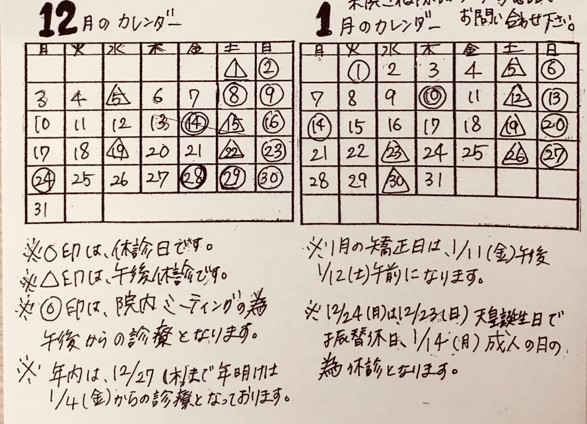 12月のカレンダー
月 火 水 木 金 土 日
1 2
3 4 5 6 7 8 9
10 11 12 13 14 15 16
17 18 19 20 21 22 23
24 25 26 27 28 29 30
31
※○印は、休診日です。
※△印は、午後休診です。
※◎印は、院内ミーティングの為
午後からの診療となります。
※年内は、12/27(木)まで年明けは
1/4(金)からの診療となっております。
お問い合わせ下さい。
1月のカレンダー
月 火 水 木 金 土 日
1 2 3 4 5 6
7 8 9 10 11 12 13
14 15 16 17 18 19 20
21 22 23 24 25 26 27
28 29 30 31
※1月の矯正日は、1/11(金)午後
1/12(土)午前になります。
※12/24(月)は12/23(日)天皇誕生日で
振替休日、1/14(月)成人の日の
為休診となります。